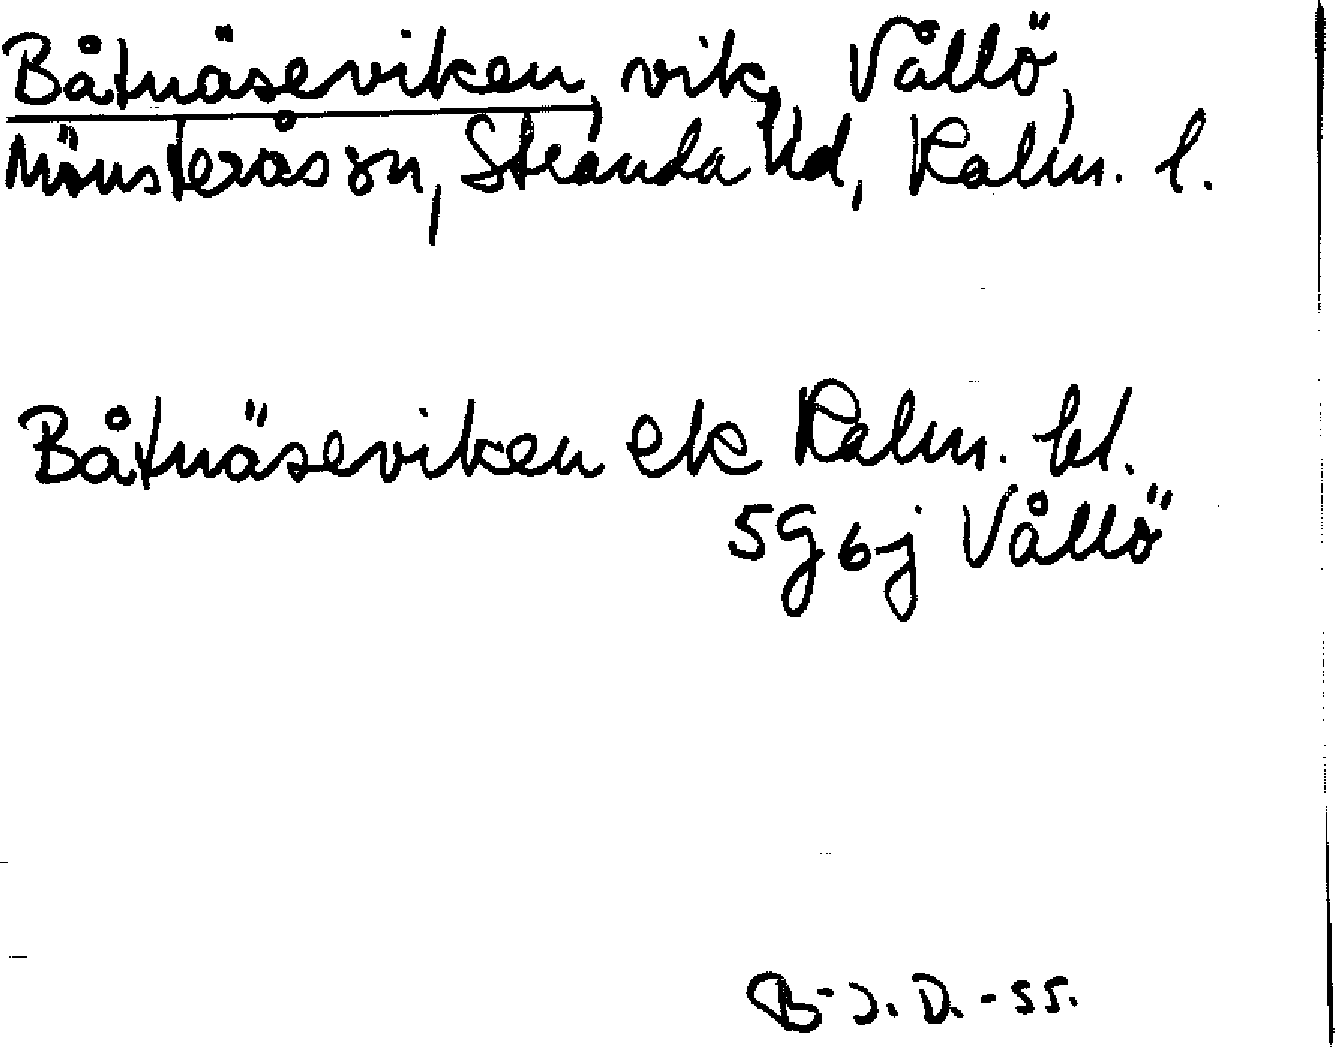 Båtnäseviken, vik, Vållö,
Mönsterås sn, Stranda hd, Kalm. l.
Båtnäseviken ek Kalm. bl.
5G6j Vållö
B-J.D. -55.